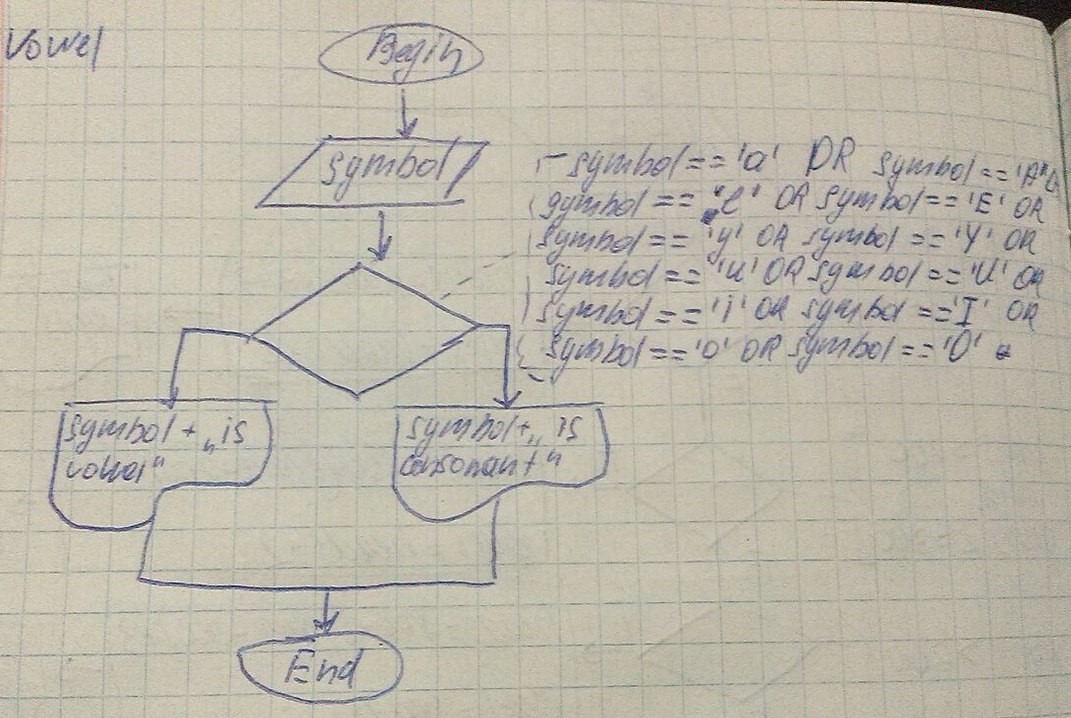 Vowel
Begin
symbol
symbol=='a' OR symbol=='A' OR
symbol == 'e' OR symbol=='E' OR
symbol== 'y' OR symbol =='Y' OR
symbol== 'u' OR symbol=='U' OR
symbol=='i' OR symbol=='I' OR
symbol=='o' OR symbol=='O'
symbol+„is
vowel"
symbol+„is
consonant"
End